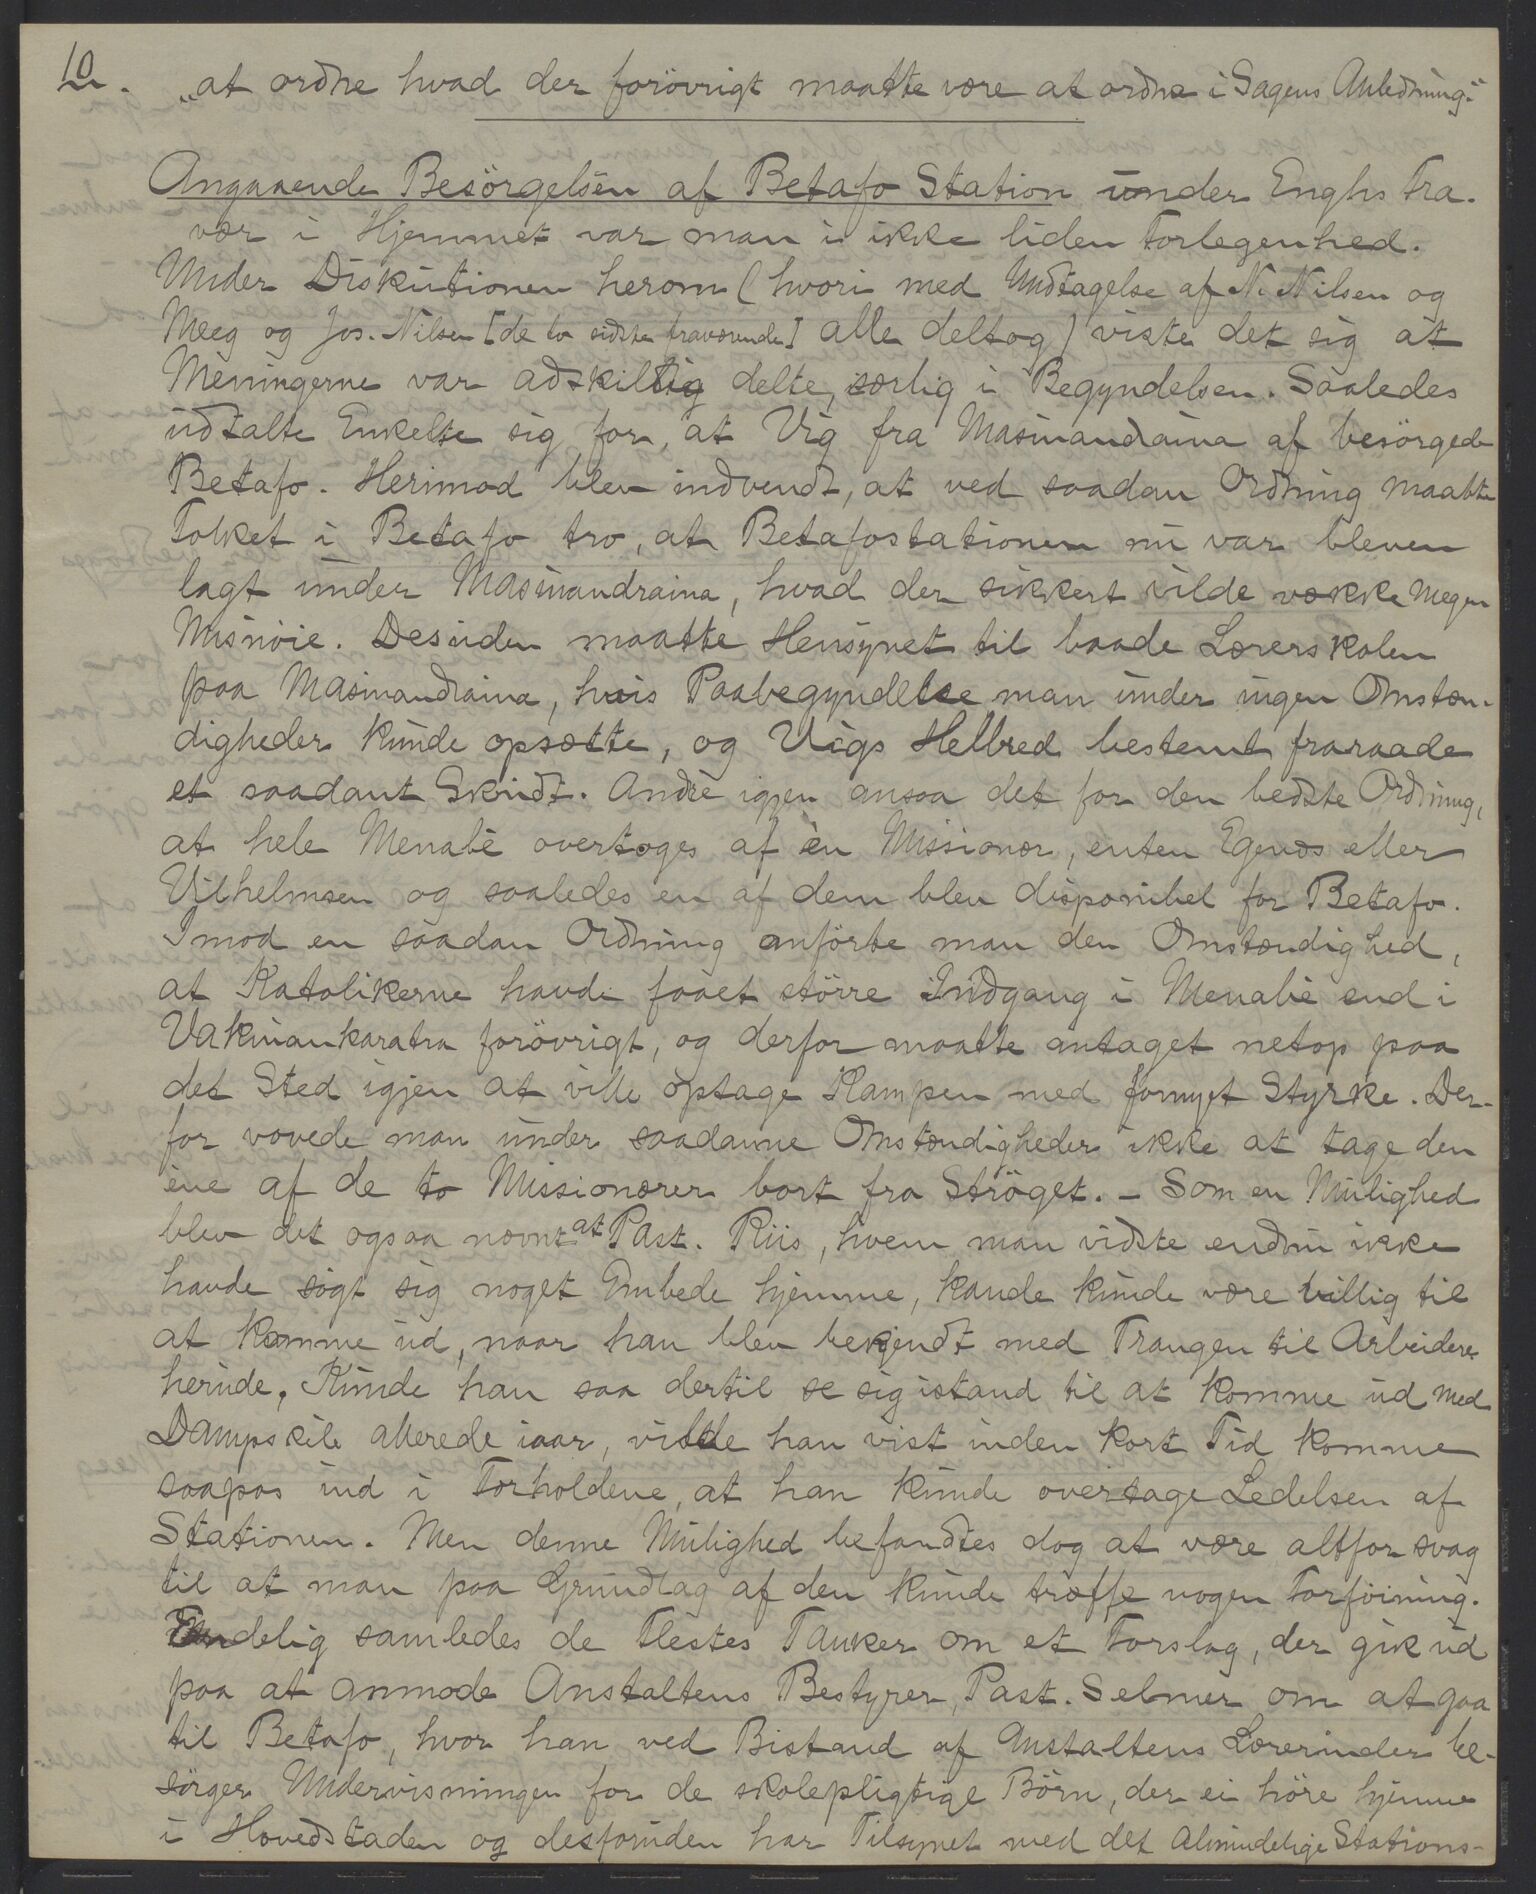 10. „at ordne hvad der forövrigt maatte være at ordne i Sagens Anledning."
Angaaende Besörgelsen af Betafo Station under Enghs Fra-
vær i Hjemmet var man i ikke liden Forlegenhed.
Under Diskutionen herom (hvori med Undtagelse af N. Nilsen og
Meeg og Jos. Nilsen [de to sidste fraværende] alle deltog) viste det sig at
Meningerne var adskillig delte, særlig i Begyndelsen. Saaledes
udtalte Enkelte sig for, at Vig fra Masinandraina af besörgede
Betafo. Herimod blev indvendt, at ved saadan Ordning maatte
Folket i Betafo tro, at Betafostationen nu var bleven
lagt under Masinandraina, hvad der sikkert vilde vække megen
Misnöie. Desuden maatte Hensynet til baade Lærerskolen
paa Masinandraina, hvis Paabegyndelse man under ingen Omstæn-
digheder kunde opsætte, og Vigs Helbred bestemt fraraade
et saadant Skridt. Andre igjen ansaa det for den bedste Ordning,
at hele Menabé overtoges af én Missionær, enten Egenæs eller
Vilhelmsen og saaledes en af dem blev disponibel for Betafo.
Imod en saadan Ordning anförte man den Omstændighed,
at Katolikerne havde faaet större Indgang i Menabé end i
Vakinankaratra forövrigt, og derfor maatte antaget netop paa
det Sted igjen at ville optage Kampen med fornyet Styrke. Der-
for vovede man under saadanne Omstændigheder ikke at tage den
ene af de to Missionærer bort fra Ströget. – Som en Mulighed
blev det ogsaa nævnt at Past. Riis, hvem man vidste endnu ikke
havde sögt sig noget Embede hjemme, kande kunde være villig til
at komme ud, naar han blev bekjendt med Trangen til Arbeidere
herude. Kunde han saa dertil se sig istand til at komme ud med
Dampskib allerede iaar, vilde han vist inden kort Tid komme
saapas ind i Forholdene, at han kunde overtage Ledelsen af
Stationen. Men denne Mulighed befandtes dog at være altfor svag
til at man paa Grundlag af den kunde træffe nogen Forföining.
Endelig samledes de Flestes Tanker om et Forslag, der gik ud
paa at anmode Anstaltens Bestyrer, Past. Selmer om at gaa
til Betafo, hvor han ved Bistand af Anstaltens Lærerinder be-
sörger Undervisningen for de skolepligtige Börn, der ei höre hjemme
i Hovedstaden og desforuden har Tilsynet med det almindelige Stations-